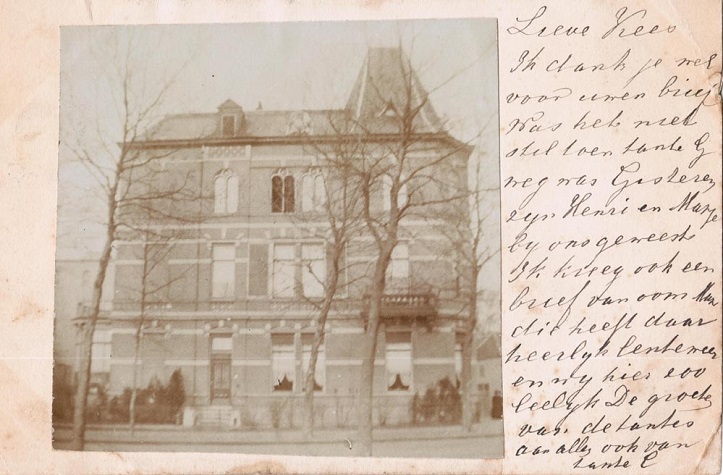 Lieve Kees
Ik dank je wel
voor uwen brief
Was het niet
stil toen tante G
weg was Gisteren
zyn Henri en Marge
by ons geweest
Ik kreeg ook een
brief van oom Max
die heeft daar
heerlyk lenteweer
en wy hier zoo
leelyk De groete
van de tantes
aan allen ook van
tante C